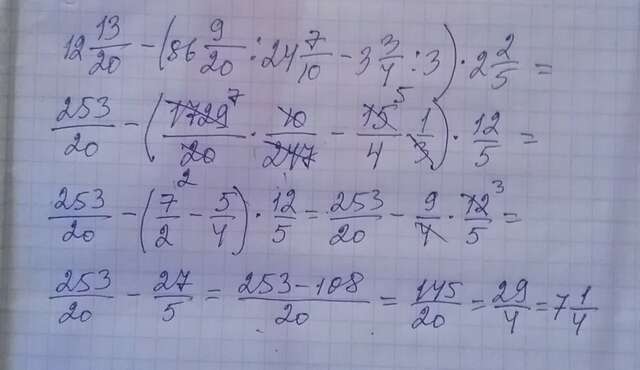 12 13/20 − (86 9/20 : 24 7/10 − 3 3/4 : 3) · 2 2/5 =
253/20 − (1729 7/20 · 10/247 − 15 5/4 · 1/3) · 12/5 =
253/20 − (7 2/2 − 5/4) · 12/5 = 253/20 − 9/4 · 12 3/5 =
253/20 − 27/5 = 253−108/20 = 145/20 = 29/4 = 7 1/4